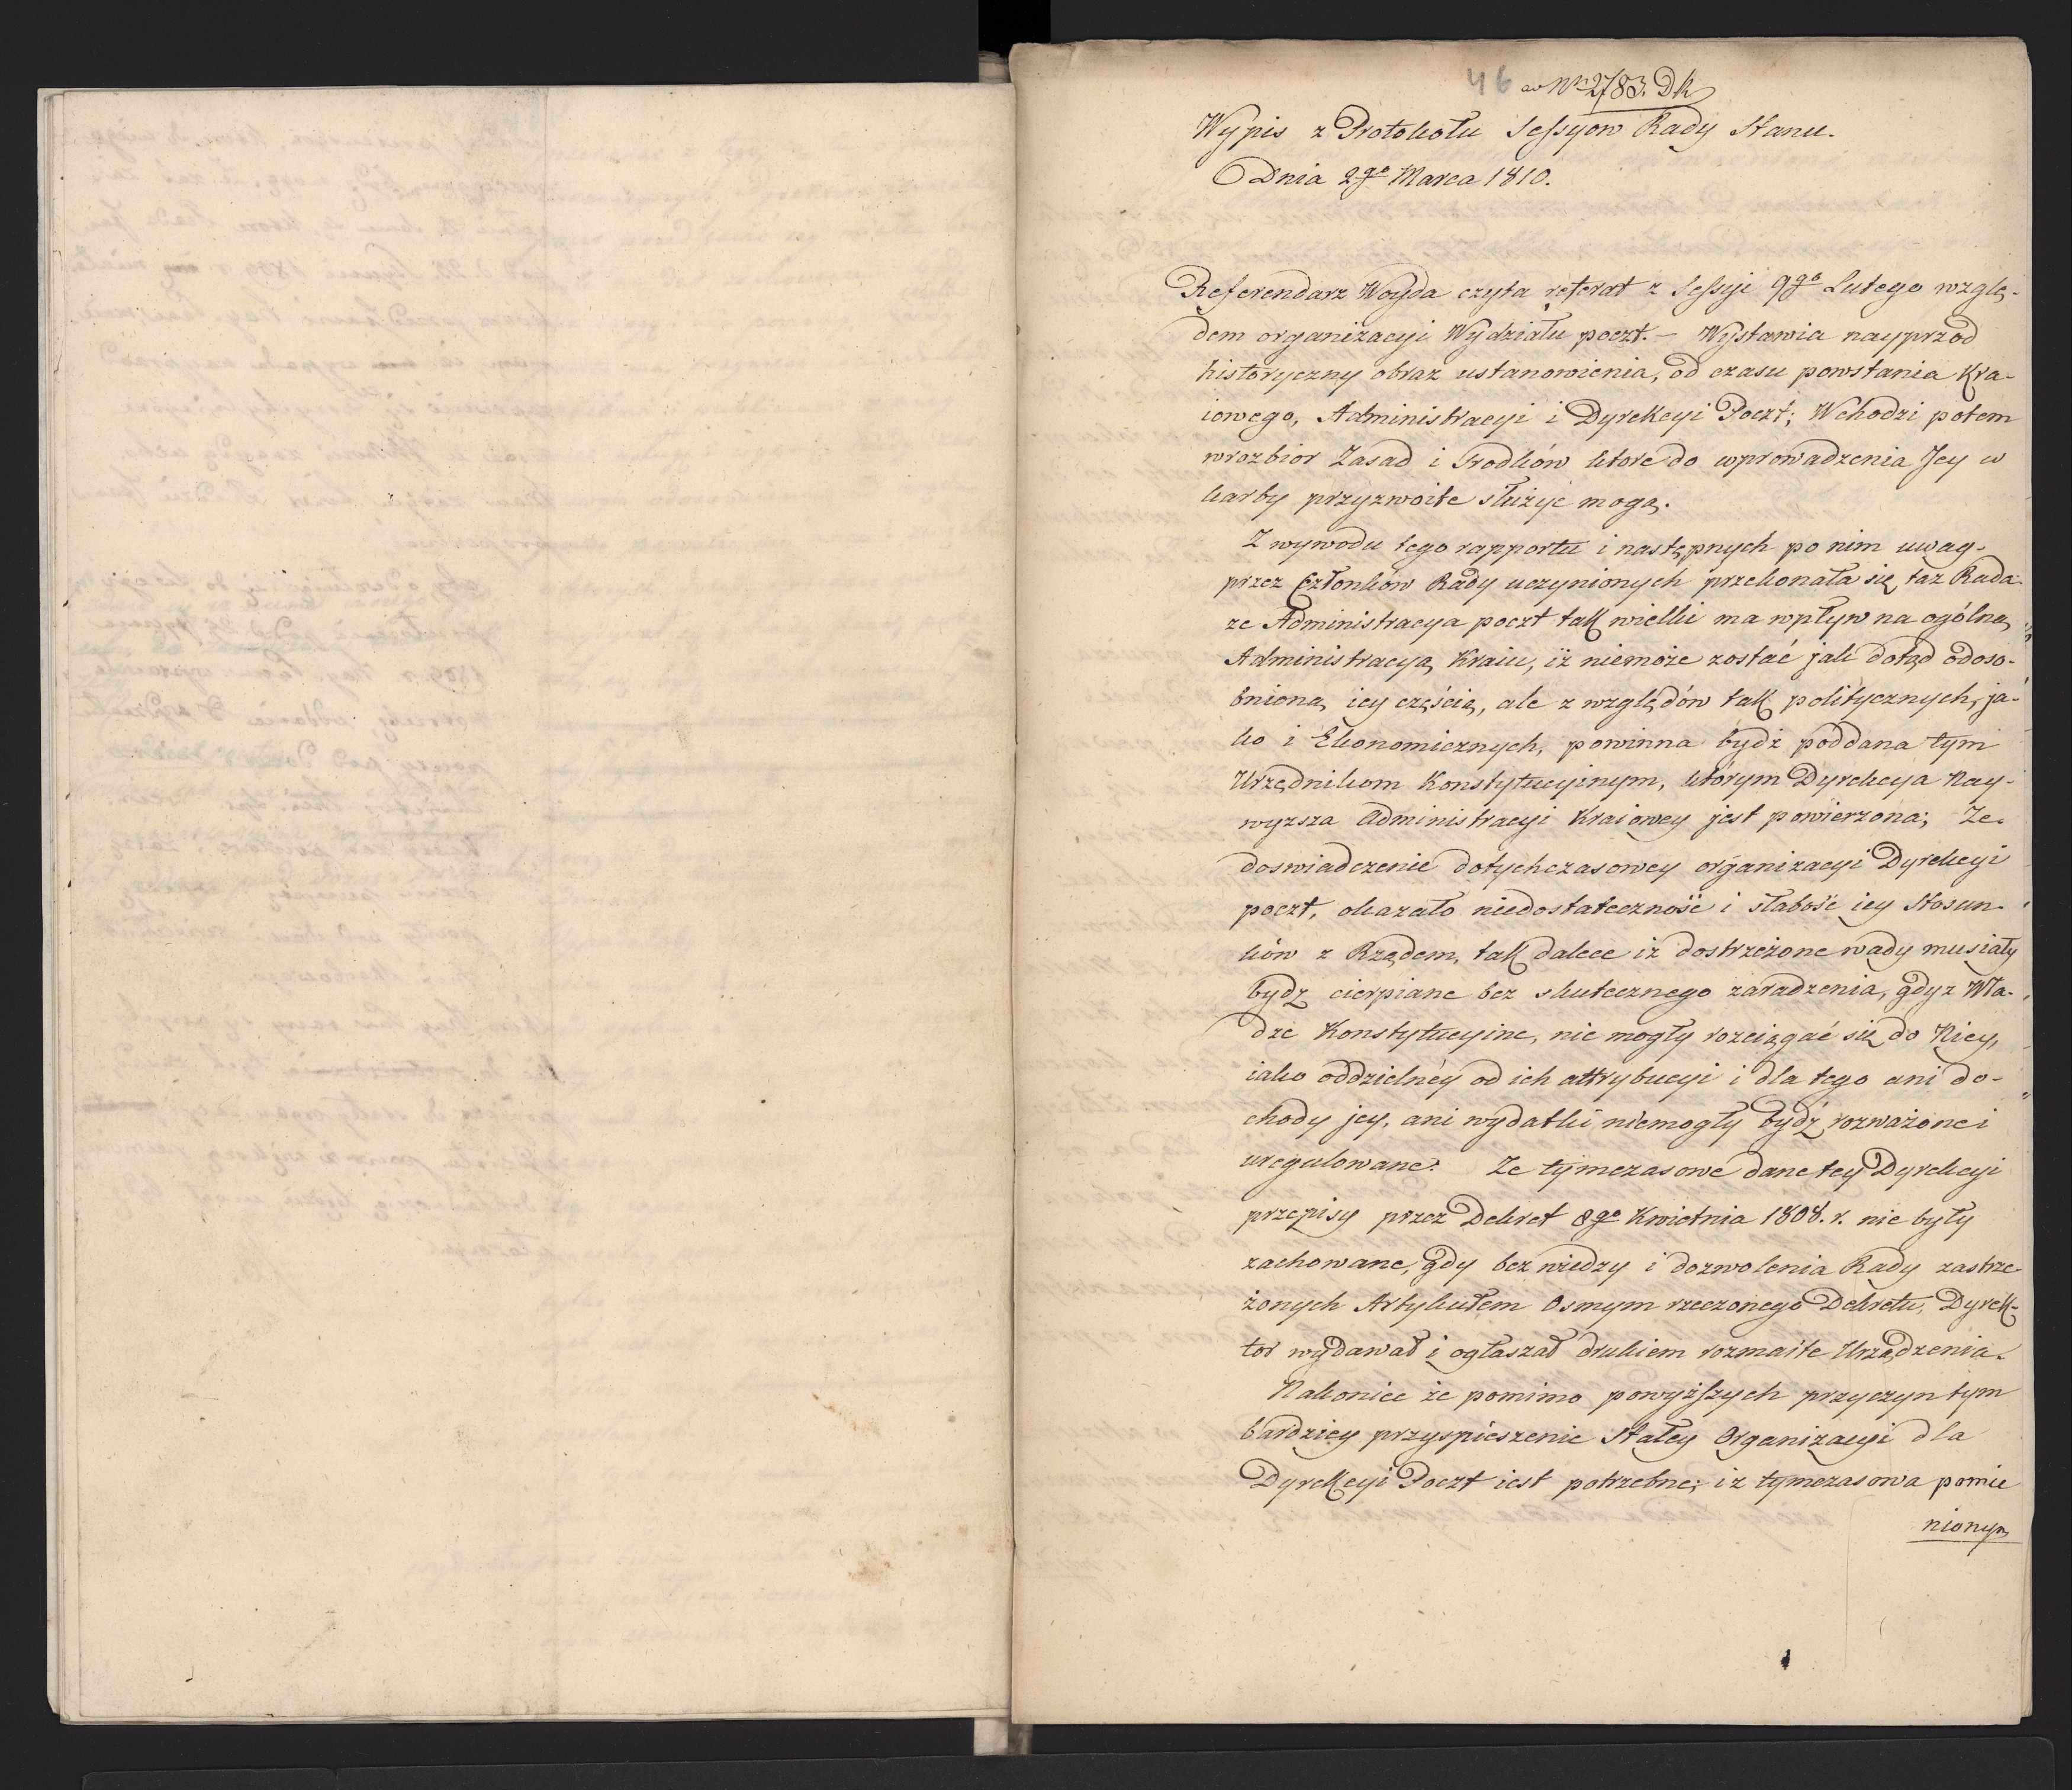 46 ad Nr 2783. Dk
Wypis z Protokołu Sessyow Rady Stanu.
Dnia 2go Marca 1810.
Referendarz Woyda czyta referat z Sessyi 9go Lutego wzglę-
dem organizacyi Wydziału poczt. – Wystawia nayprzod
historyczny obraz ustanowienia, od czasu powstania Kra-
iowego, Administracyi i Dyrekcyi Poczt; Wchodzi potem
wrozbior Zasad i Srodków ktore do wprowadzenia Jey w
karby przyzwoite służyć mogą.
Z wywodu tego rapportu i następnych po nim uwag
przez Członków Rady uczynionych przekonała się taż Rada
ze Administracya poczt tak wielki ma wpływ na ogólną
Administracyą Kraiu, iż niemoże zostać jak dotąd odoso-
bnioną iey częścią, ale z względów tak politycznych, ja-
ko i Ekonomicznych, powinna bydź poddana tym
Urzędnikom Konstytucyinym, którym Dyrekcya Nay-
wyzsza Administracyi Kraiowey jest powierzona; Ze
doswiadczenie dotychczasowey organizacyi Dyrekcyi
poczt, okazało niedostateczność i słabość iey Stosun-
ków z Rządem, tak dalece iż dostrzeżone wady musiały
bydź cierpiane bez skutecznego zaradzenia, gdyz Wła-
dze Konstytucyine, nie mogły rozciągać się do Niey,
iako oddzielnéy od ich attrybucyi i dla tego ani do-
chody jey, ani wydatki niemogły bydź rozważone i
uregulowane. Ze tymczasowe dane tey Dyrekcyi
przepisy przez Dekret 8go Kwietnia 1808. r. nie były
zachowane, gdy bez wiedzy i dozwolenia Rady zastrze-
żonych Artykułem Osmym rzeczonego Dekretu, Dyrek-
tor wydawał i ogłaszał drukiem rozmaite Urządzenia.
Nakoniec że pomimo powyższych przyczyn tym
bardziey przyspieszenie Stałey Organizacyi dla
Dyrekcyi Poczt iest potrzebne; iż tymczasowa pomie
nionym